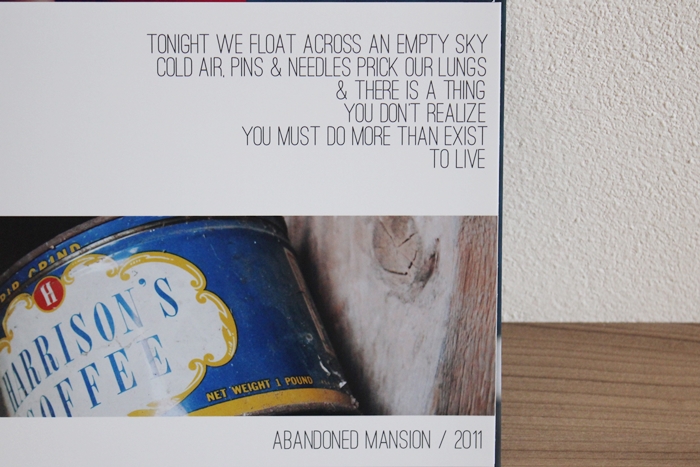 TONIGHT WE FLOAT ACROSS AN EMPTY SKY
COLD AIR, PINS & NEEDLES PRICK OUR LUNGS
& THERE IS A THING
YOU DON'T REALIZE
YOU MUST DO MORE THAN EXIST
TO LIVE
GRIND
H
HARRISON'S
COFFEE
NET WEIGHT 1 POUND
ABANDONED MANSION / 2011